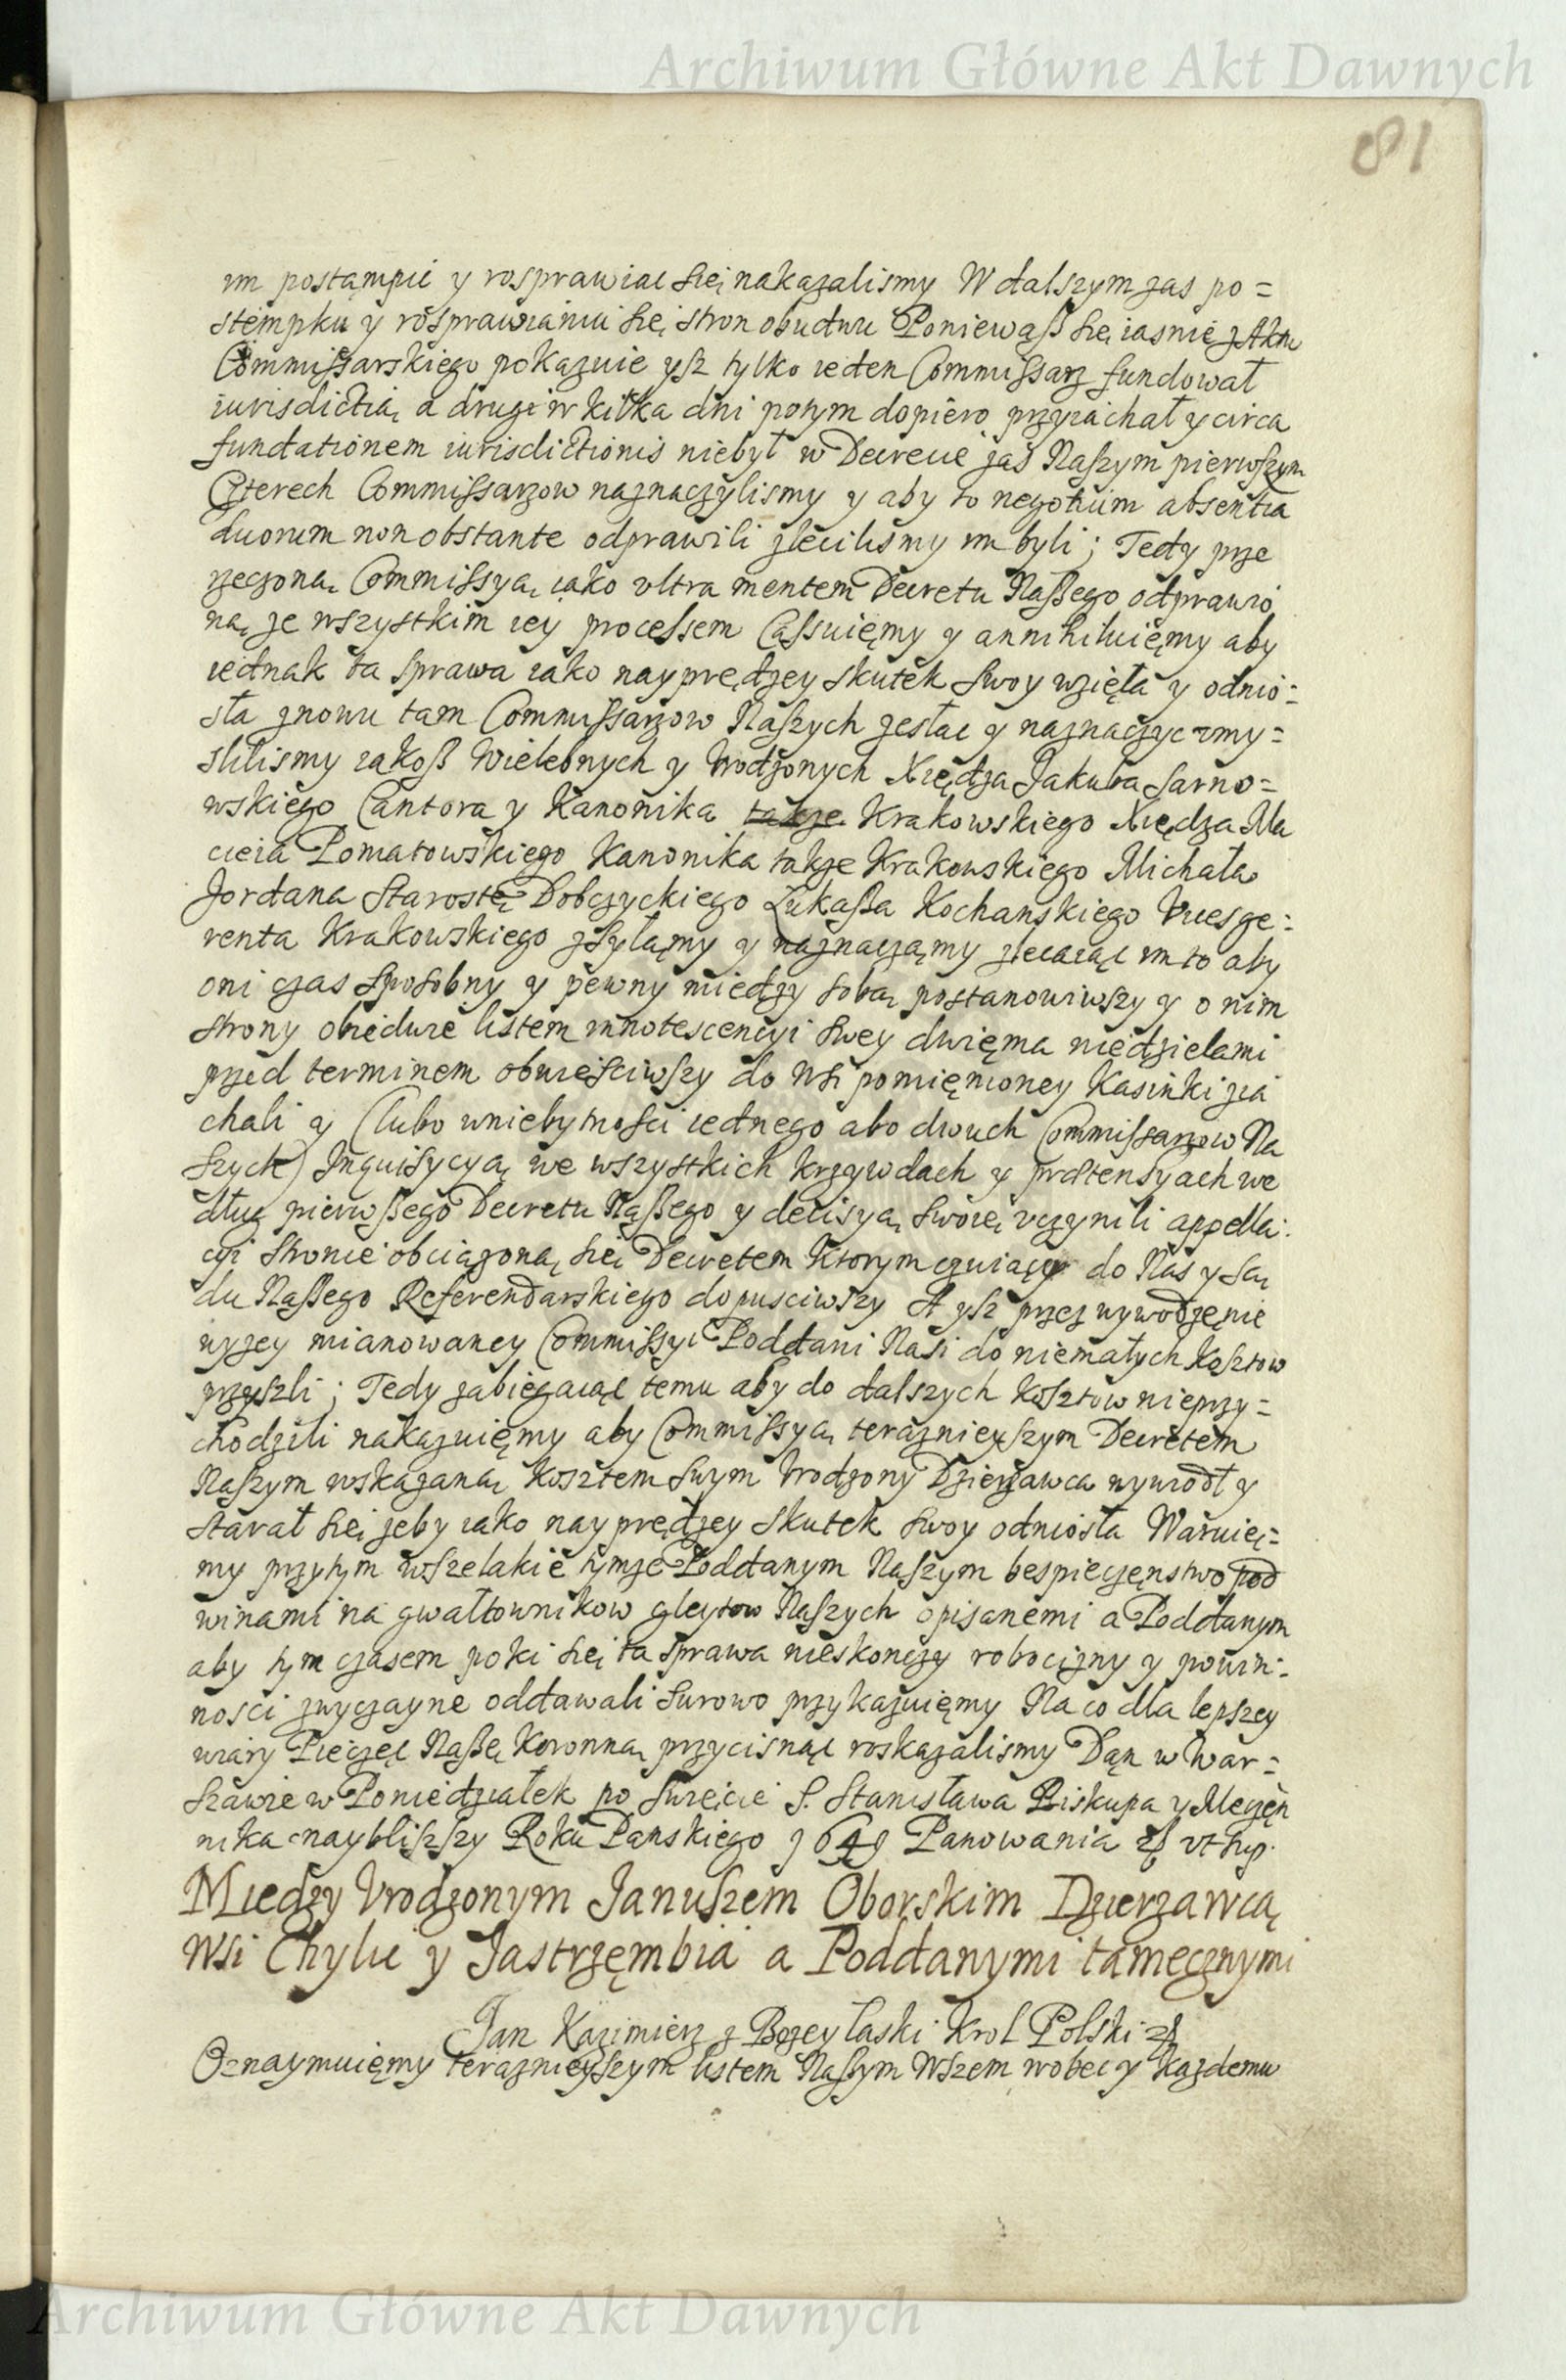 Archiwum Główne Akt Dawnych
81
im postąmpić y rosprawiac się nakazalismy W dalszym zas po=
stempku y rosprawianiu się stron obudwu Poniewaß się iasnie z Aktu
Commissarskiego pokazuie ysz tylko ieden Commissarz fundował
iurisdictią a drugi w kilka dni potym dopiero przyiachał y circa
fundationem iurisdictionis niebył w Decrecie zas Naszym pierwszym
Czterech Commissarzow naznaczylismy y aby to negotium absentia
duorum non obstante odprawili zlecilismy im byli; Tedy prze
rzeczoną Commissyą iako vltra mentem Decretu Naßego odprawio
ną ze wszystkim iey processem Cassuięmy y annihiluięmy aby
iednak ta sprawa iako nayprędzey skutek swoy wzięła y odnio=
sła znowu tam Commissarzow Naszych zesłac y naznaczyc vmy=
slilismy iakoß Wielebnych y Vrodzonych Xiędza Jakuba Sarno=
wskiego Cantora y Kanonika takze Krakowskiego Xiędza Ma
cieia Pomatowskiego Kanonika takze Krakowskiego Michała
Jordana Starostę Dobczyckiego Łukaßa Kochanskiego Vicesge=
renta Krakowskiego zsyłąmy y naznacząmy zlecaiąc im to aby
oni czas sposobny y pewny miedzy sobą postanowiwszy y o nim
strony obiedwie listem innotescencyi swey dwięma niedzielami
przed terminem obwieściwszy do Wsi pomięnioney Kasinki zia
chali y (lubo w niebytnosci iednego abo dwuch Commissarzow Na
szych) Inquisycyą we wszystkich krzywdach y prætensyach we
dług pierwßego Decretu Naßego y decisyą swoię vczynili appella=
cyi stronie obciązoną się Decretem ktorym czuiącey do Nas y Są
du Naßego Referendarskiego dopusciwszy A ysz przez wywodzęnie
wyzey mianowaney Commissyi Poddani Nasi do niemałych kosztow
przyszli; Tedy zabiegaiąc temu aby do dalszych kosztow nieprzy=
chodzili nakazuięmy aby Commissyą teraznieyszym Decretem
Naszym wskazaną kosztem swym Vrodzony Dzierzawca wywiodł y
starał się zeby iako nayprędzey skutek swoy odniosła Waruię=
my przytym wszelakie tymze Poddanym Naszym bespieczęnstwo pod
winami na gwałtownikow gleytow Naszych opisanemi a Poddanym
aby tym czasem poki się ta sprawa nieskonczy robocizny y powin=
nosci zwyczayne oddawali surowo przykazuięmy Na co dla lepszey
wiary Pieczęć Naßę Koronną przycisnąc roskazalismy Dąn w War=
szawie w Poniedziałek po Swięcie S. Stanisława Biskupa y Męczęn
nika naybliszszy Roku Panskiego 1649 Panowania etc vt sup.
Między Vrodzonym Januszem Oborskim Dzierzawcą
Wsi Chylic y Jastrzęmbia a Poddanymi tamecznymi
Jan Kazimierz z Bozey Łaski Krol Polski etc
Oznaymuięmy teraznieyszym listem Naßym Wszem wobec y kazdemu
Archiwum Główne Akt Dawnych